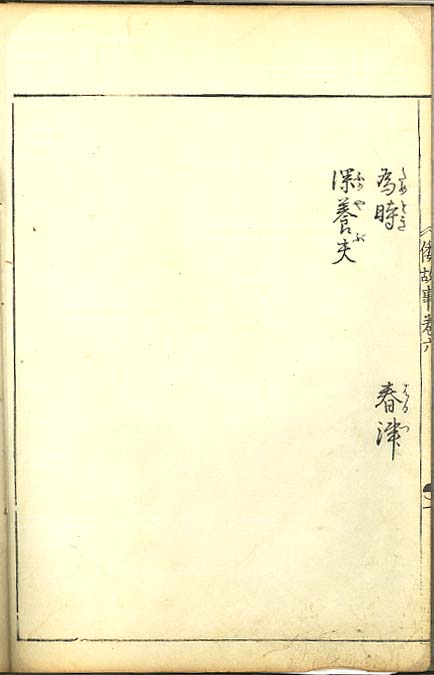 倭故事巻六
為時
ためとき
春津
はるつ
深養夫
ふかやぶ